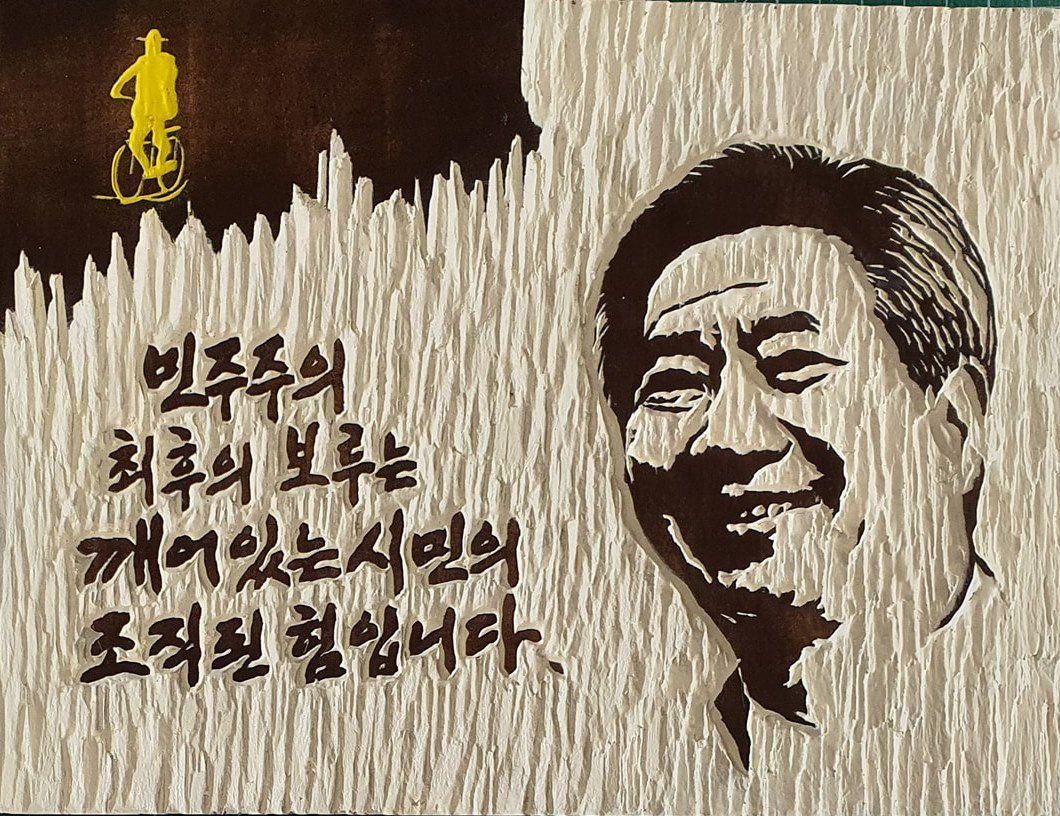 민주주의
최후의 보루는
깨어있는시민의
조직된 힘입니다.